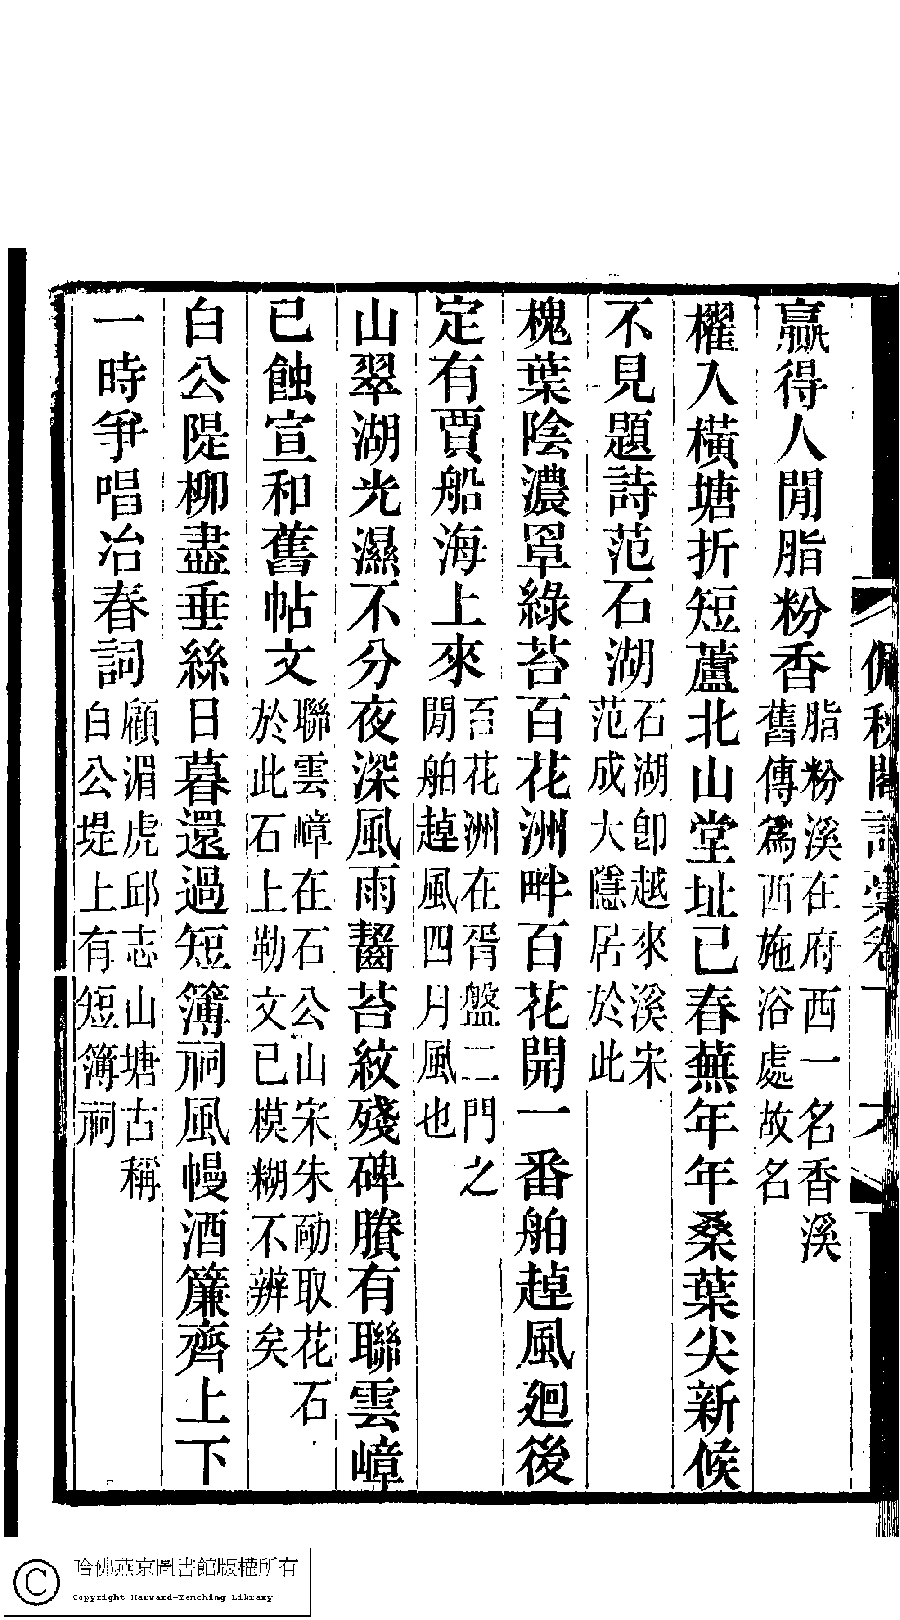 贏得人閒脂粉香脂粉溪在府西一名香溪舊傳爲西施浴處故名
櫂入橫塘折短蘆北山堂址已春蕪年年桑葉尖新候
不見題詩范石湖石湖卽越來溪宋范成大隱居於此
槐葉陰濃罩綠苔百花洲畔百花開一番舶趠風廻後
定有賈船海上來百花洲在胥盤二門之閒舶趠風四月風也
山翠湖光濕不分夜深風雨齧苔紋殘碑賸有聯雲嶂
已蝕宣和舊帖文聯雲嶂在石公山宋朱勔取花石於此石上勒文已模糊不辨矣
白公隄柳盡垂絲日暮還過短簿祠風幔酒簾齊上下
一時爭唱冶春詞顧湄虎邱志山塘古稱白公堤上有短簿祠
哈佛燕京圖書館版權所有
Copyright Harvard-Yenching Library